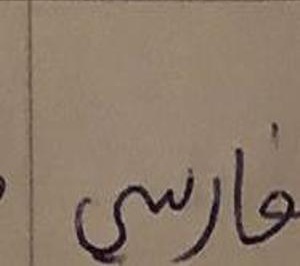 فارسی